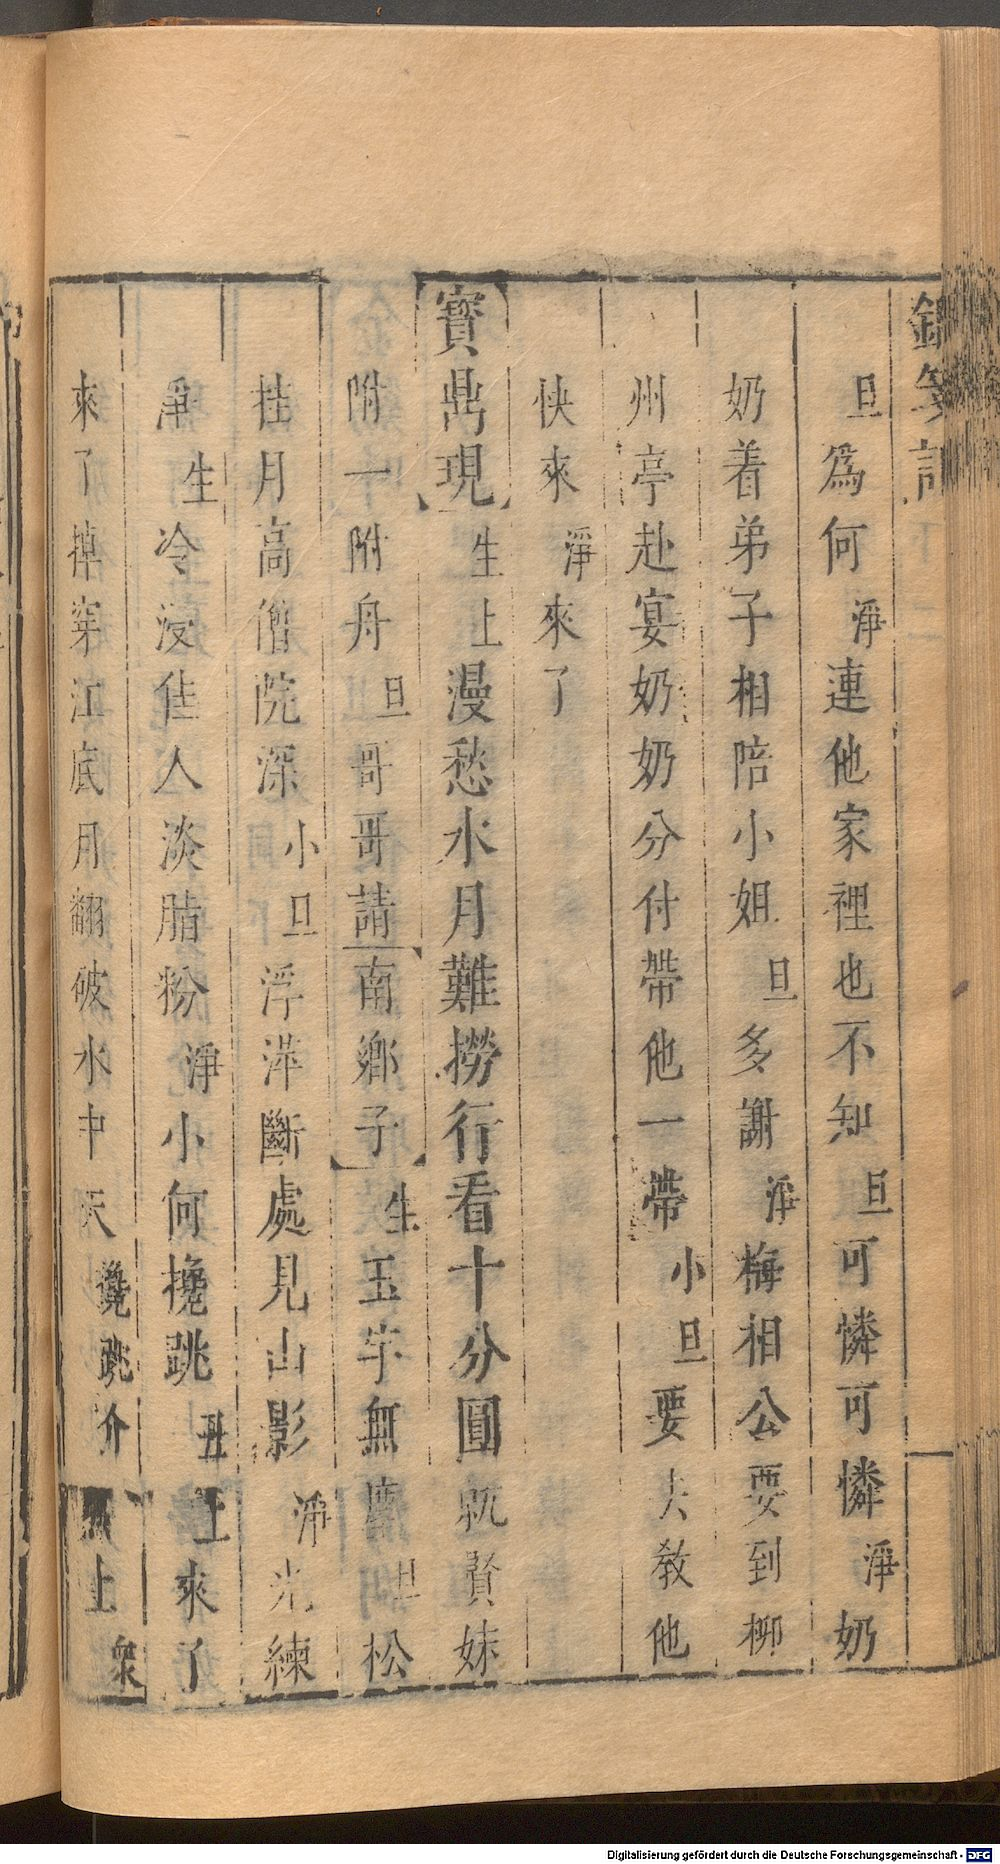 旦爲何淨連他家裡也不知旦可憐可憐淨奶
奶着弟子相陪小姐旦多謝淨梅相公要到柳
州亭赴宴奶奶分付帶他一帶小旦要去教他
快來淨來了
寳鼎現生上漫愁水月難撈行看十分圓就賢妹
附一附舟旦哥哥請南鄉子生玉宇無塵旦松
桂月高僧院深小旦浮萍斷處見山影淨光練
淨生冷浸佳人淡脂粉淨小何攙跳丑上來了
來了掉穿江底月翻破水中天攙跳介上衆
Digitalisierung gefördert durch die Deutsche Forschungsgemeinschaft - DFG